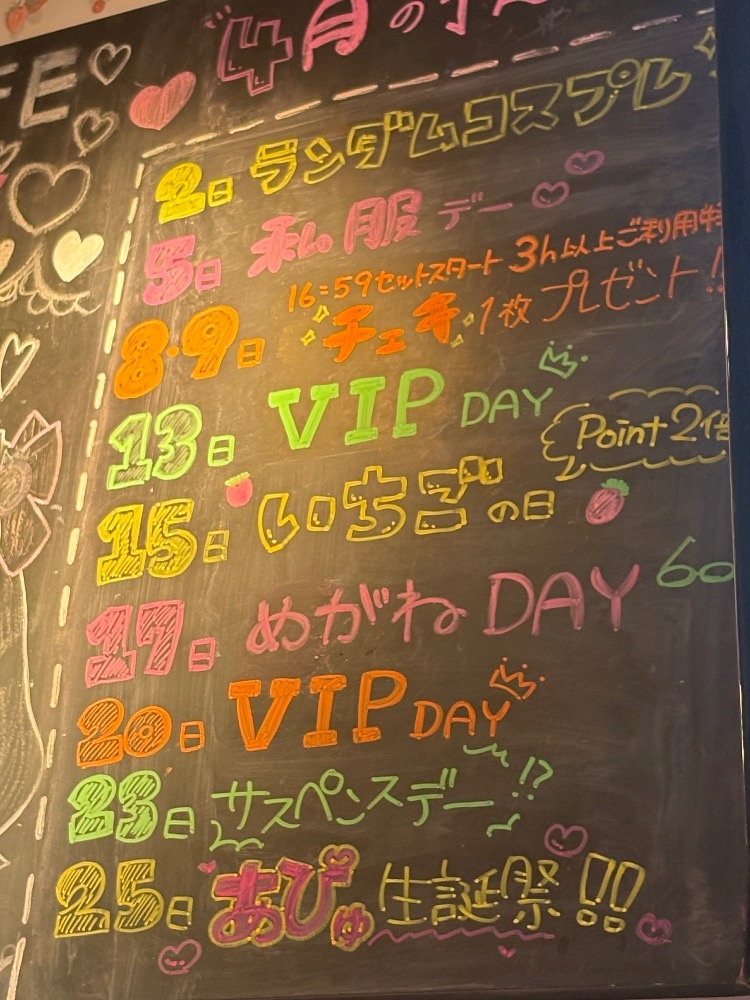 FE
4月の
2日 ランダムコスプレ
5日 私服デー
16:59セットスタート 3h以上ご利用特
8・9日 チェキ1枚プレゼント!!
13日 VIP DAY
Point 2倍
15日 いちごの日
17日 めがねDAY
20日 VIP DAY
23日 サスペンスデー!?
25日 あぴゅ生誕祭!!